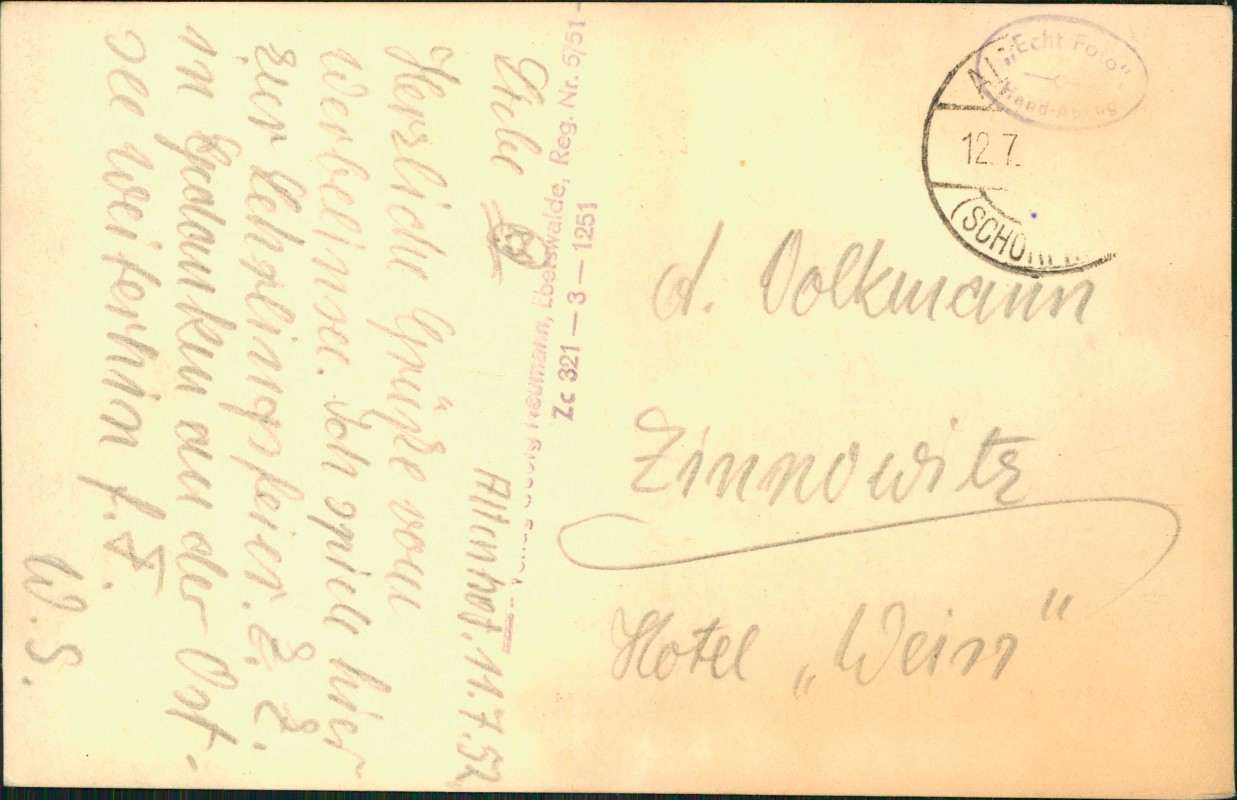 Altenhof. 11.7.52
Liebe
Herzliche Grüße vom
Werbellinsee. Ich spiele hier
zur Lehrlingsfeier. Z. Z.
in Gedanken an der Ost-
see weiterhin f. S.
W. S.
Verlag Georg Neumann, Eberswalde, Reg. Nr. 5/51 -
Zc 321 — 3 — 1251
„Echt Foto"
Hand-Abzug
12.7.
(SCHORFH
A. Volkmann
Zinnowitz
Hotel „Wein"